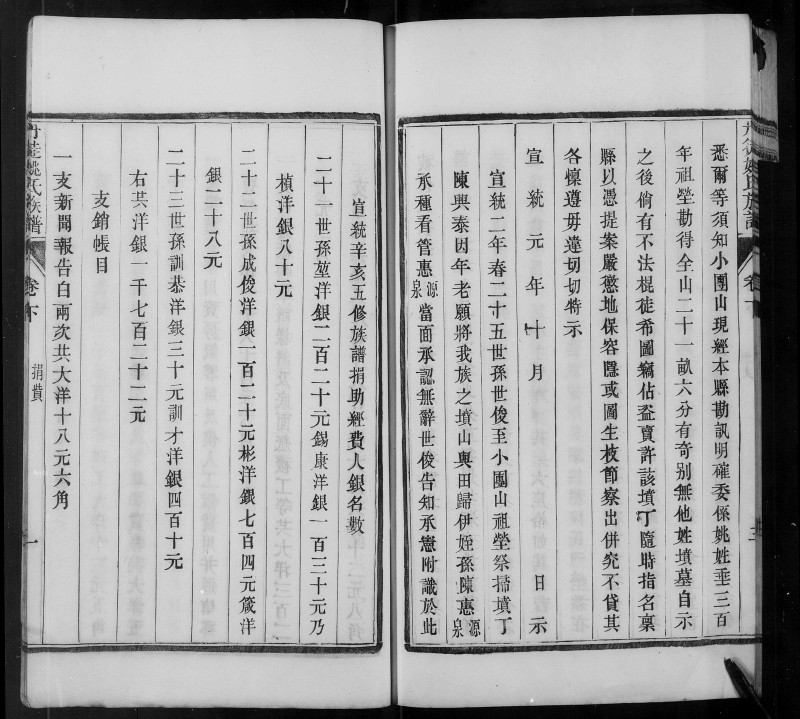 悉爾等須知小團山現經本縣勘訊明確委係姚姓垂三百
年祖塋勘得全山二十一畝六分有奇別無他姓墳墓自示
之後倘有不法棍徒希圖竊佔盜賣許該墳丁隨時指名稟
縣以憑提案嚴懲地保容隱或圖生枝節察出併究不貸其
各懍遵毋違切切特示
宣統元年十月 日示
宣統二年春二十五世孫世俊至小團山祖塋祭掃墳丁
陳興泰因年老願將我族之墳山與田歸伊姪孫陳惠源泉
承種看管惠源泉當面承認無辭世俊告知承憲附識於此
三
宣統辛亥五修族譜捐助經費人銀名數
二十一世孫堃洋銀二百二十元錫康洋銀一百三十元乃
楨洋銀八十元
二十二世孫成俊洋銀一百二十元彬洋銀七百四元箴洋
銀二十八元
二十三世孫訓恭洋銀三十元訓才洋銀四百十元
右共洋銀一千七百二十二元
支銷帳目
一支新聞報告白兩次共大洋十八元六角
姚氏族譜
卷下
捐貲
一